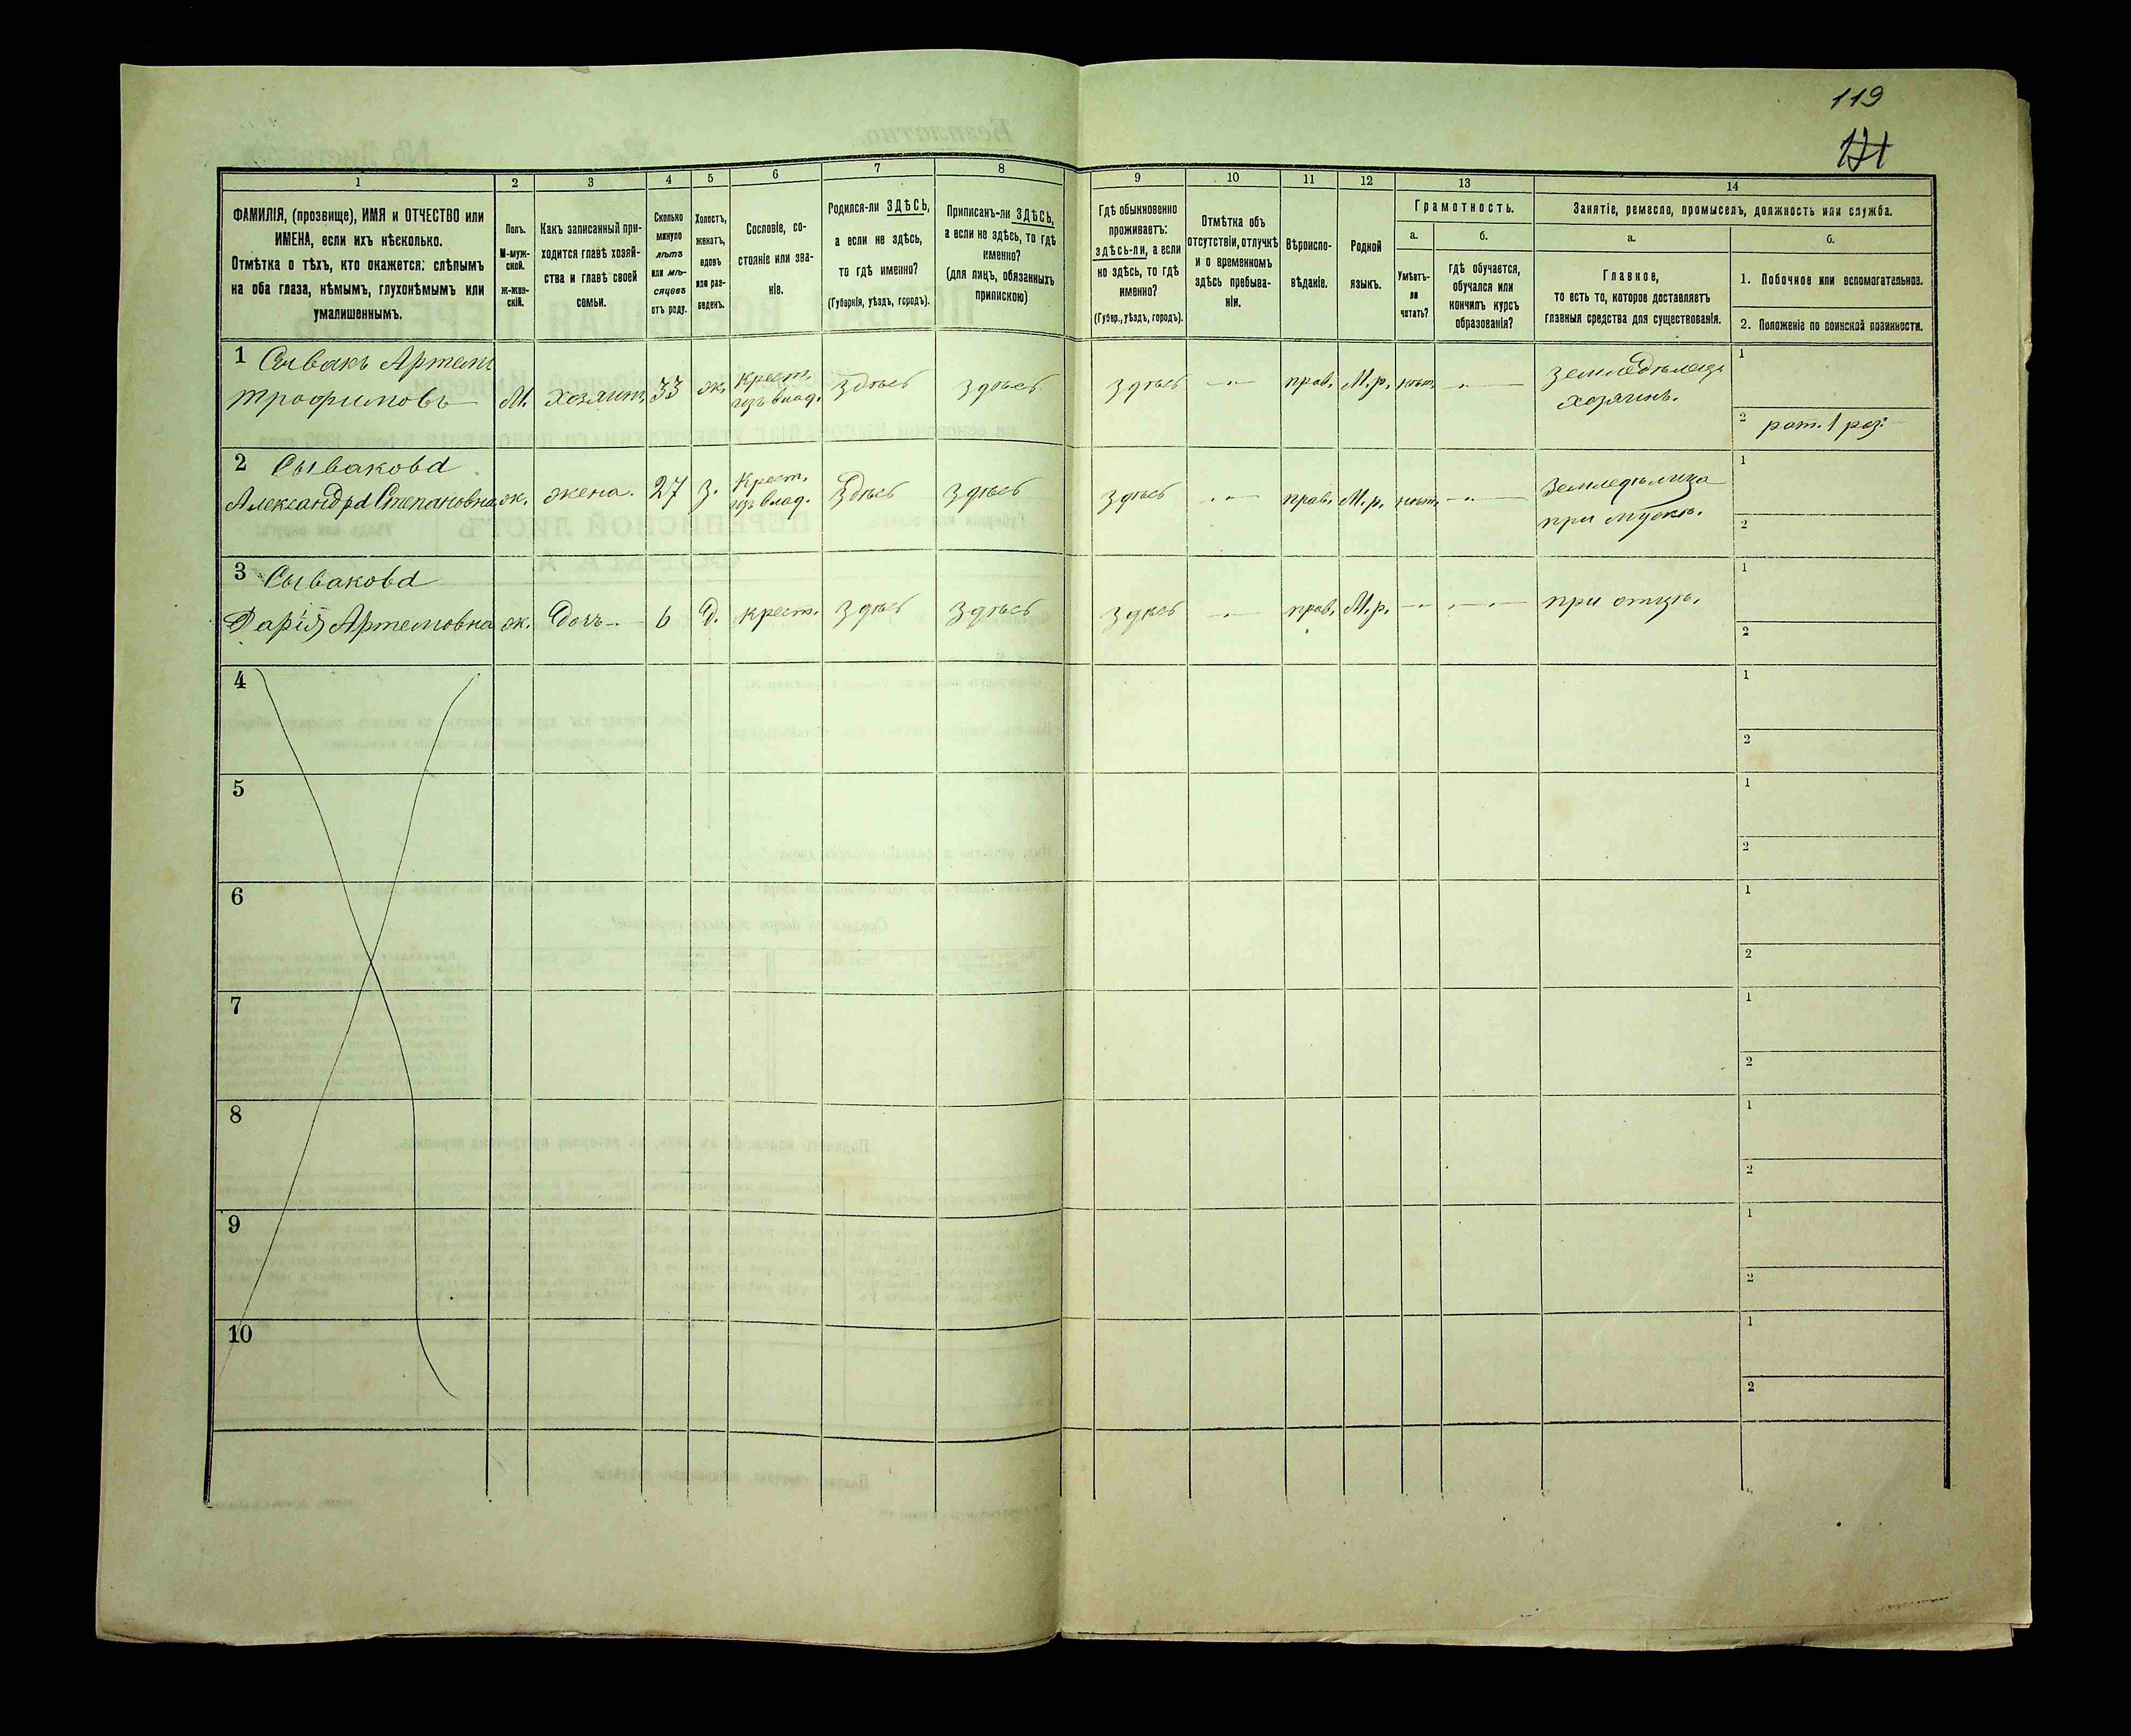 119
1 2 3 4 5 6 7 8 9 10 11 12 13 14
ФАМИЛІЯ, (прозвище), ИМЯ и ОТЧЕСТВО или
ИМЕНА, если ихъ нѣсколько.
Отмѣтка о тѣхъ, кто окажется: слѣпымъ
на оба глаза, нѣмымъ, глухонѣмымъ или
умалишеннымъ.
Полъ.
М-муж-
ской.
Ж-жен-
скій.
Какъ записанный при-
ходится главѣ хозяй-
ства и главѣ своей
семьи.
Сколько
минуло
лѣтъ
или мѣ-
сяцевъ
отъ роду.
Холостъ,
женатъ,
вдовъ
или раз-
веденъ.
Сословіе, со-
стояніе или зва-
ніе.
Родился-ли ЗДѢСЬ,
а если не здѣсь,
то гдѣ именно?
(Губернія, уѣздъ, городъ).
Приписанъ-ли ЗДѢСЬ,
а если не здѣсь, то гдѣ
именно?
(для лицъ, обязанныхъ
припискою)
Гдѣ обыкновенно
проживаетъ:
здѣсь-ли, а если
не здѣсь, то гдѣ
именно?
(Губер., уѣздъ, городъ).
Отмѣтка объ
отсутствіи, отлучкѣ
и о временномъ
здѣсь пребыва-
ніи.
Вѣроиспо-
вѣданіе.
Родной
языкъ.
Грамотность.
а. б.
Умѣетъ-
ли
читать?
гдѣ обучается,
обучался или
кончилъ курсъ
образованія?
Занятіе, ремесло, промыселъ, должность или служба.
а. б.
Главное,
то есть то, которое доставляетъ
главныя средства для существованія.
1. Побочное или вспомогательное.
2. Положеніе по воинской повинности.
1 Сывакъ Артемъ
Трофимовъ М. хозяинъ 33 ж. Крест. изъ влад. Здѣсь здѣсь здѣсь прав. М.р. нѣтъ земледѣлецъ хозяинъ. 1
2 рат. 1 раз.
2 Сывакова
Александра Степановна ж. жена. 27 з. Крест. изъ влад. Здѣсь здѣсь здѣсь прав. М.р. нѣтъ Земледѣлица при мужѣ. 1
2
3 Сывакова
Дарія Артемовна ж. дочь 6 д. крест. здѣсь здѣсь здѣсь прав. М.р. при отцѣ. 1
2
4 1
2
5 1
2
6 1
2
7 1
2
8 1
2
9 1
2
10 1
2